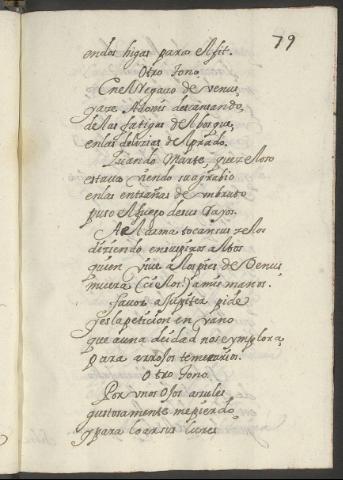 79
en dos higas para Apit.
Otro tono.
En el regaço de Venus
yaze Adonis descansando,
de las fatigas del bosque,
en las delicias del prado.
Quando Marte, que zeloso
estaua viendo su agrabio
en las entrañas de un bruto
puso el fuego de sus rayos.
Al arma tocan sus zelos
diziendo en suspiros altos
quien viue a los pies de Venus
muera (cielos) a mis manos.
fauor a Jupiter pide
y es la peticion en vano
que a una deidad no se ymplora,
para arrojos temerarios.
Otro tono
Por unos ojos asules
gustosamente me pierdo,
y para loar sus luzes